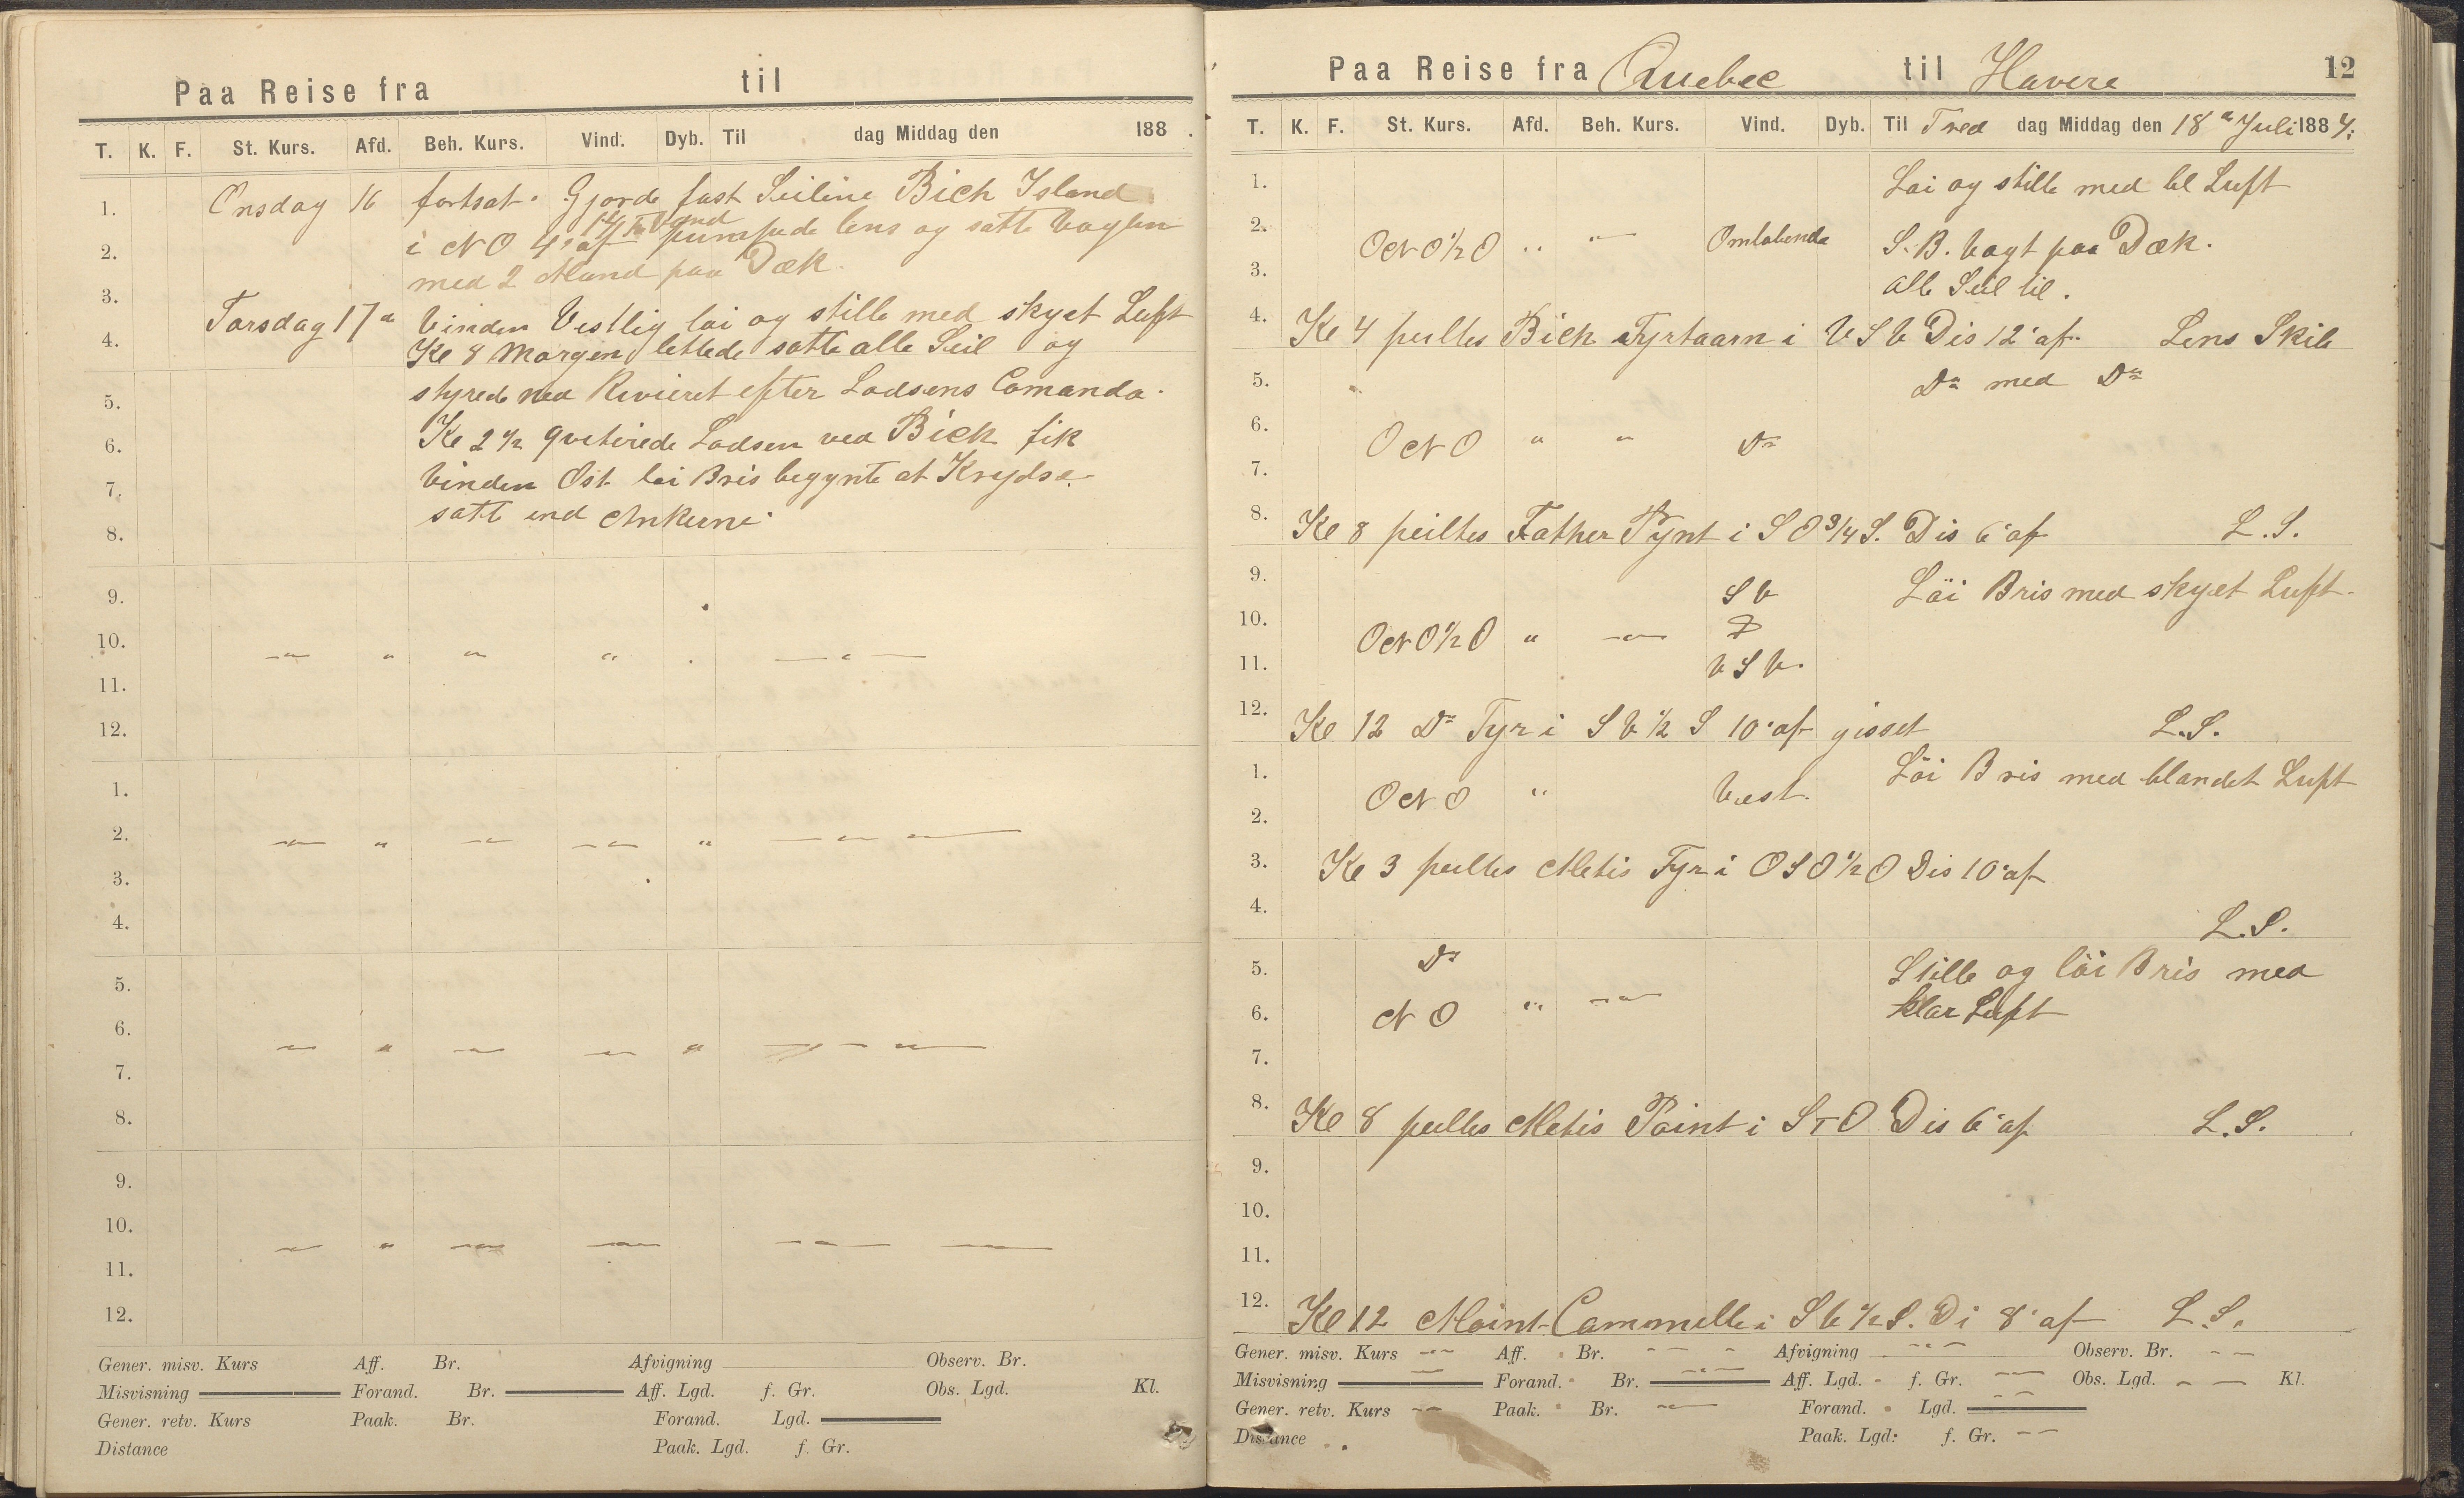 Paa Reise fra til
T. K. F. St. Kurs. Afd. Beh. Kurs. Vind. Dyb. Til dag Middag den 188 .
1. Onsdag 16 fortsat. Gjorde fast Seilene Bich Island
2. i NO 4' af pumpede lens og satte Vagten
3. med 2 Mand paa Dæk.
4. Torsdag 17de Vinden Vestlig løi og stille med skyet Luft
Kl 8 Morgen lettede satte alle Seil og
5. styrede ned Rivieret efter Lodsens Comando.
6. Kl 2 1/2 qviterede Lodsen ved Bich fik
7. Vinden Øst løi Bris begynte at Krydse.
8. satte ind Ankerne.
9.
10. — " " " " . — " —
11.
12.
1.
2. — " " — " — — " — " — " — " —
3.
4.
5.
6. — " — " — " — — " — " — — " —
7.
8.
9.
10. — " — " — " — — " — — " — —
11.
12.
Gener. misv. Kurs Aff. Br. Afvigning Observ. Br.
Misvisning Forand. Br. Aff. Lgd. f. Gr. Obs. Lgd. Kl.
Gener. retv. Kurs Paak. Br. Forand. Lgd.
Distance Paak. Lgd. f. Gr.
Paa Reise fra Quebec til Havere 12
T. K. F. St. Kurs. Afd. Beh. Kurs. Vind. Dyb. Til Fred dag Middag den 18de Juli 1884.
1. Løi og stille med bl Luft
2. ONO 1/2 O " " Omløbende S.B. Vagt paa Dæk.
3. alle Seil til.
4. Kl 4 peiltes Bich Fyrtaarn i VSV Dis 12' af. Lens Skib
5. Do med Do
6. ONO " " Do
7.
8. Kl 8 peiltes Father Pynt i SO 3/4 S. Dis 6' af L.S.
9. SV Løi Bris med skyet Luft.
10. ONO 1/2 O " — " —
11. VSV.
12. Kl 12 Do Fyr i SV 1/2 S 10' af gisset L.S.
1. Løi Bris med blandet Luft
2. ONO " Vest.
3. Kl 3 peiltes Metis Fyr i OSO 1/2 O Dis 10' af
4. L.S.
5. Do Stille og løi Bris med
6. NO " — " — klar Luft
7.
8. Kl 8 peiltes Metis Point i StO Dis 6' af L.S.
9.
10.
11.
12. Kl 12 Moint Cammelle i SV 1/2 S. Di 8' af L.S.
Gener. misv. Kurs — " — Aff. " Br. — " — Afvigning — " — Observ. Br. — —
Misvisning — Forand. " Br. — " — Aff. Lgd. " f. Gr. — Obs. Lgd. — — Kl.
Gener. retv. Kurs — " Paak. " Br. — " — Forand. " Lgd. — —
Distance . . Paak. Lgd. f. Gr. — —